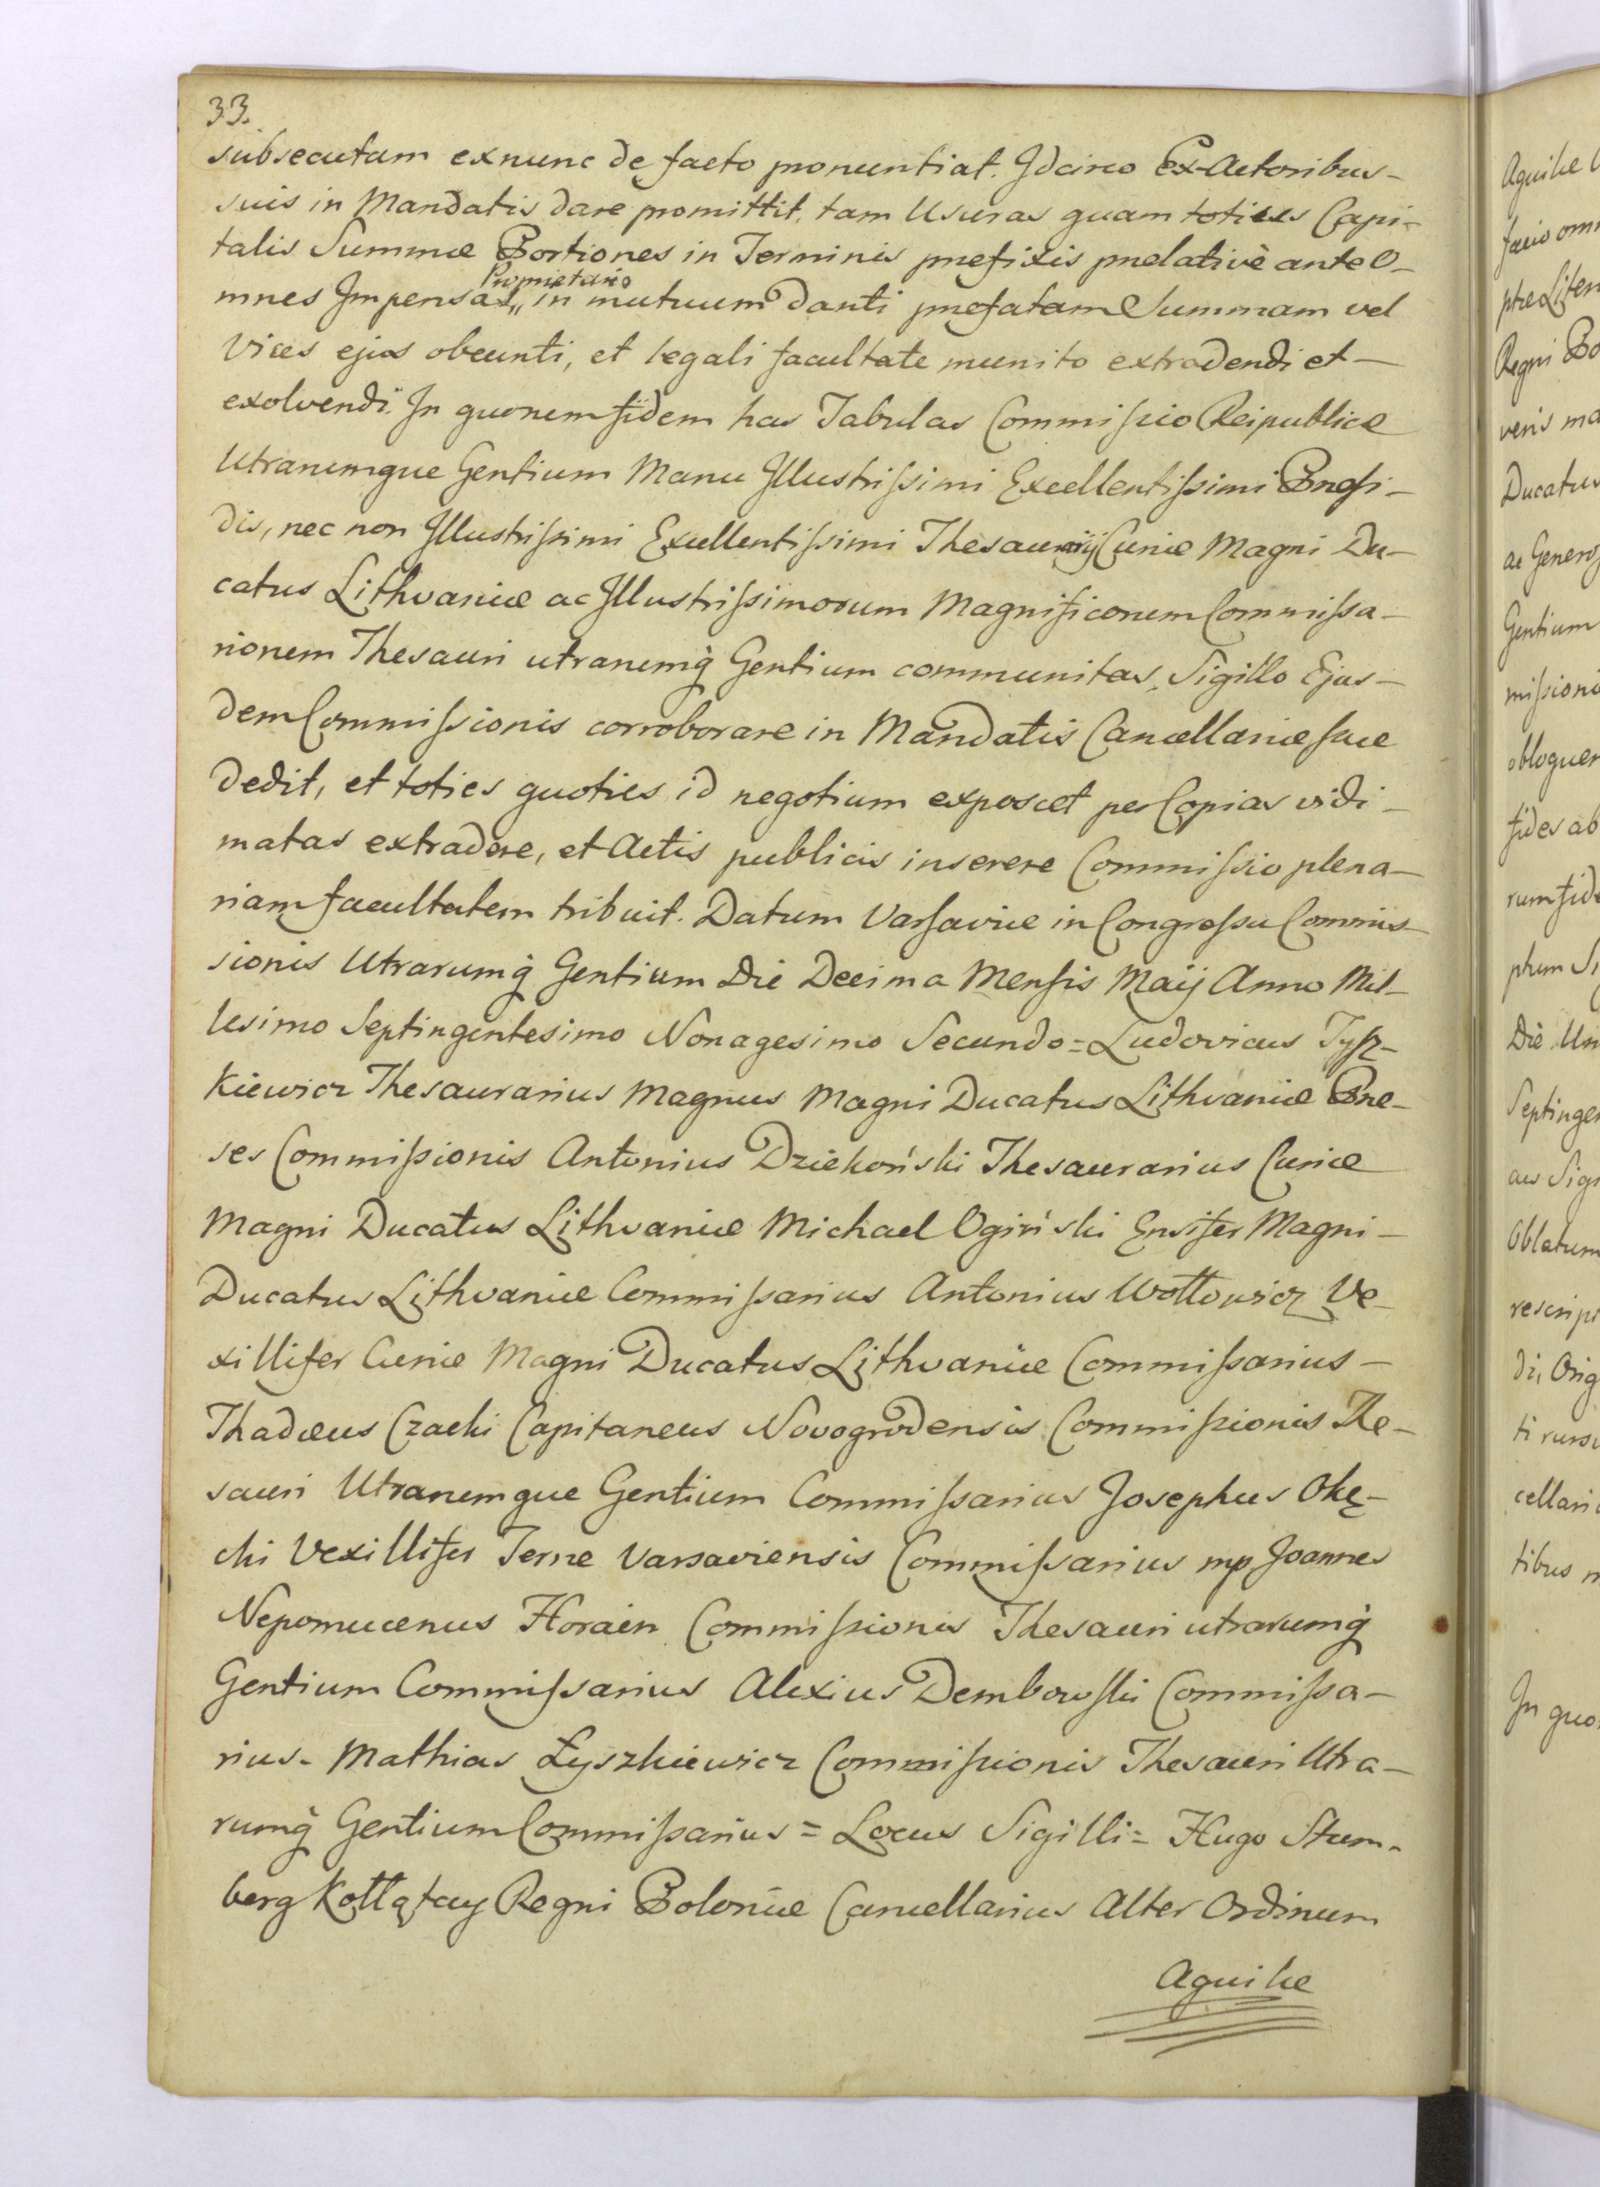 33.
subsecutam exnunc de facto pronuntiat. Idcirco Ex-Actoribus-
suis in Mandatis dare promittit, tam Usuras quam toties Capi-
talis Summæ Portiones in Terminis præfixis prælativè ante O-
Proprietario
mnes Impensas,, in mutuum danti præfatam Summam vel
Vices ejus obeunti, et legali facultate munito extradendi et-
exolvendi. In quorum fidem has Tabulas Commissio Reipublicæ
Utrarumque Gentium Manu Illustrissimi Excellentissimi Præsi-
dis, nec non Illustrissimi Excellentissimi Thesaurarij Curiæ Magni Du-
catus Lithvaniæ ac Illustrissimorum Magnificorum Commissa-
riorum Thesauri utrarumq̀ Gentium communitas, Sigillo Ejus-
dem Commissionis corroborare in Mandatis Cancellariæ suæ
dedit, et toties quoties id negotium exposcet per Copias vidi-
matas extradere, et Actis publicis inserere Commissio plena-
riam facultatem tribuit. Datum Varsaviæ in Congressu Commis-
sionis Utrarumq̀ Gentium Die Decima Mensis Maij Anno Mil-
lesimo Septingentesimo Nonagesimo Secundo = Ludovicus Tysz-
kiewicz Thesaurarius Magnus Magni Ducatus Lithvaniæ Præ-
ses Commissionis Antonius Dziekoński Thesaurarius Curiæ
Magni Ducatus Lithvaniæ Michael Ogiński Ensifer Magni-
Ducatus Lithvaniæ Commissarius Antonius Wołłowicz Ve-
xillifer Curiæ Magni Ducatus Lithvaniæ Commissarius-
Thadæus Czacki Capitaneus Novogrodensis Commissionis The-
sauri Utrarumque Gentium Commissarius Josephus Okę-
cki Vexillifer Terræ Varsaviensis Commissarius mp Joannes
Nepomucenus Horain Commissionis Thesauri utrarumq̀
Gentium Commissarius Alexius Dembowski Commissa-
rius- Mathias Łyszkiewicz Commissionis Thesauri Utra-
rumq̀ Gentium Commissarius = Locus Sigilli = Hugo Stum-
berg Kołłątay Regni Poloniæ Cancellarius Alter Ordinum
Aquilæ